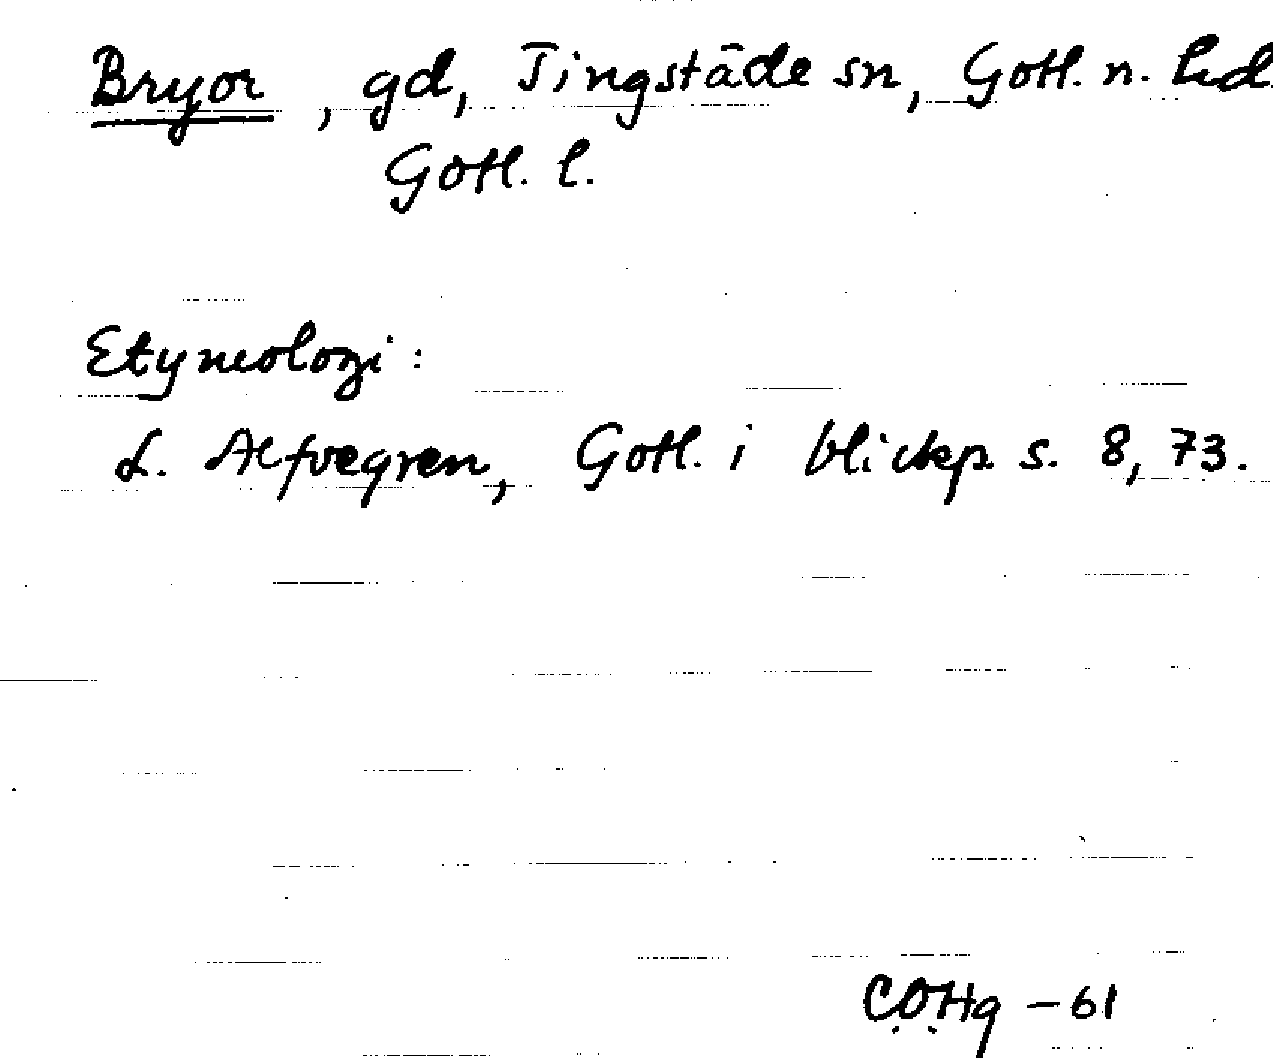 Bryor, gd, Tingstäde sn, Gotl. n. hd
Gotl. l.
Etymologi:
L. Alfvegren, Gotl. i blickp. s. 8, 73.
COHg -61